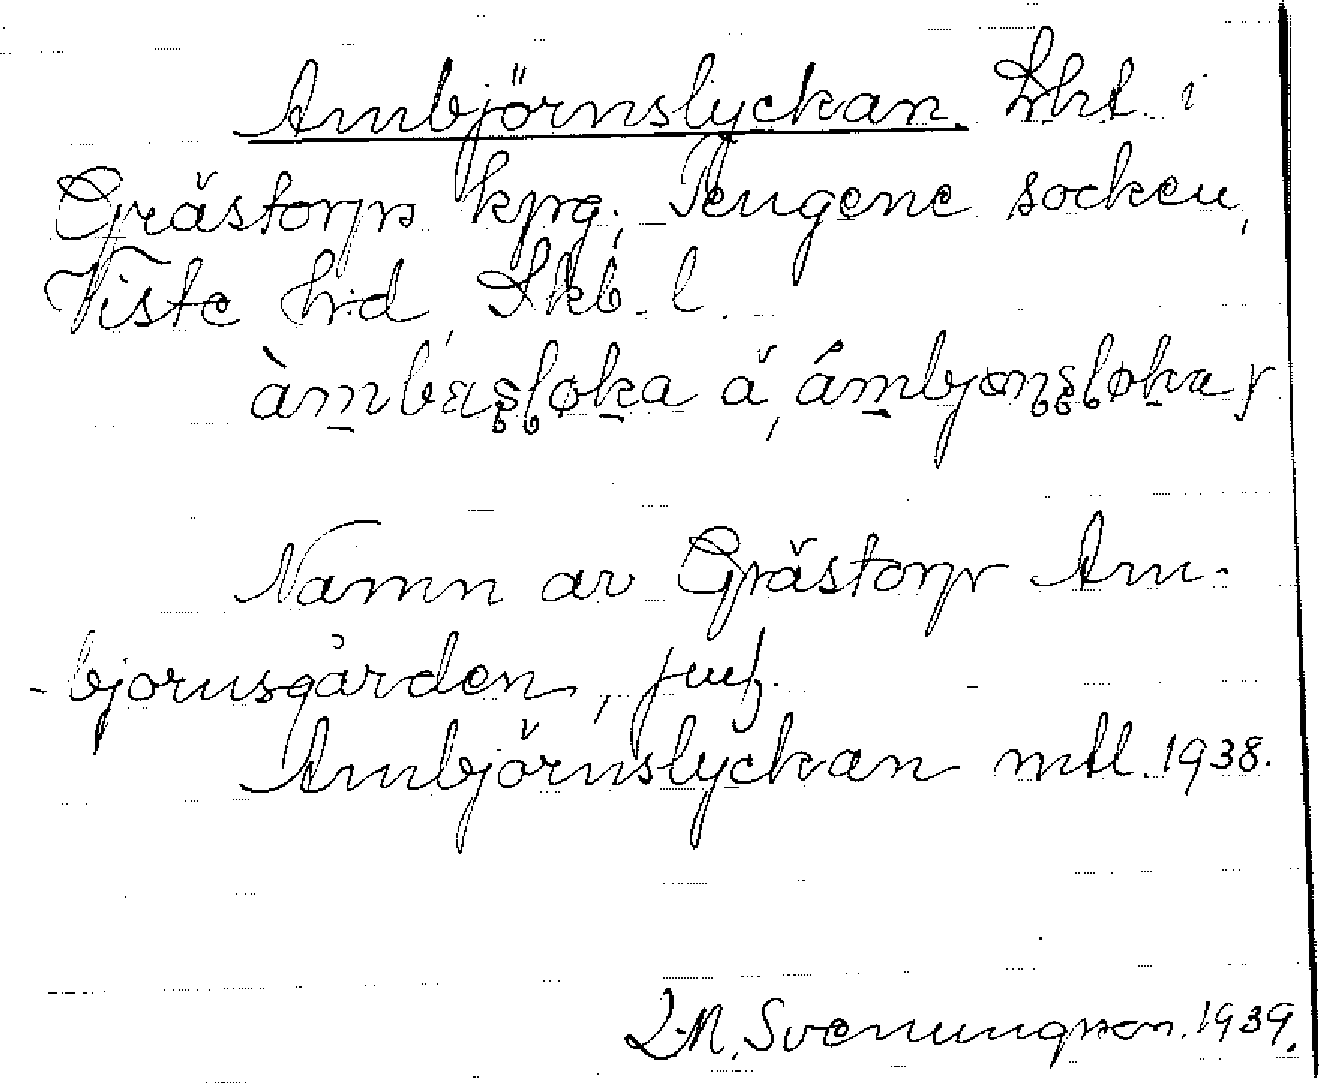 Ambjörnslyckan. Lht. i
Grästorps kpg, Tengene socken,
Viste hd, Skb. l.
àmbasloka å, ámbjonsloka
Namn av Grästorp Am-
-bjornsgården, jmf.
Ambjörnslyckan mtl. 1938.
Svenungsson. 1939.